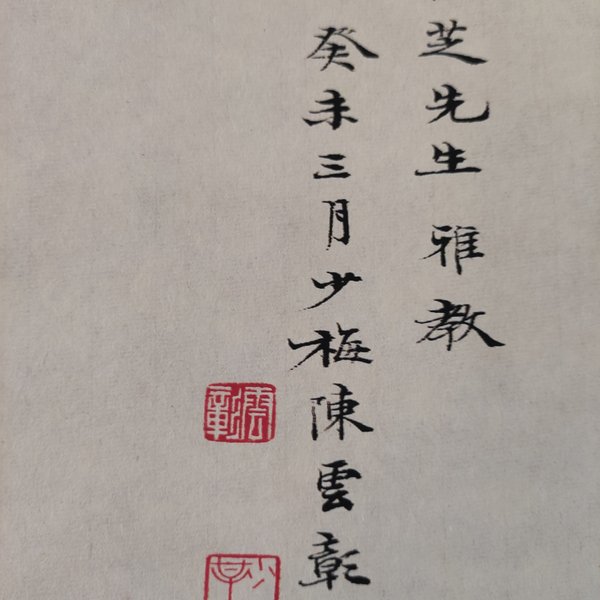 芝先生雅教
癸未三月少梅陳雲彰
雲彰